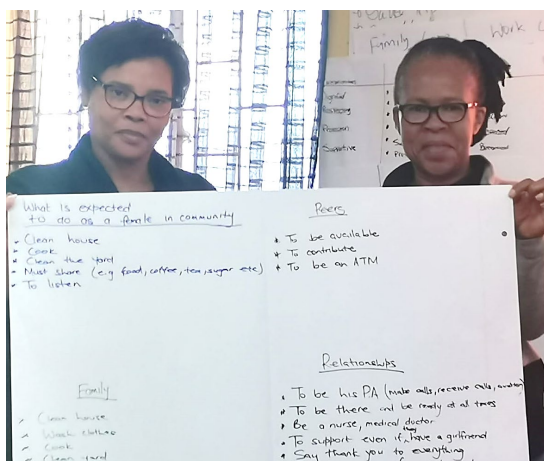 What is expected
to do as a female in community
* Clean house
* Cook
* Clean the yard
* Must share (e.g food, coffee, tea, sugar etc)
* To listen
Peers
* To be available
* To contribute
* To be an ATM
Family
* Clean house
* Wash clothes
* Cook
* Clean yard
Relationships
* To be his PA (make calls, receive calls,
* To be there and be ready at all times
* Be a nurse, medical doctor
* To support even if they have a girlfriend
* Say thank you to everything
Family
Work
Supportive